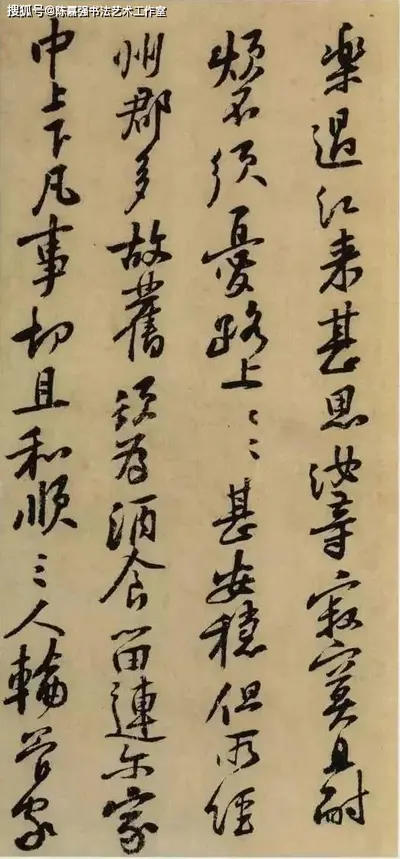 搜狐号@陈嘉强书法艺术工作室
樂過江来甚思汝等寂寞且耐
煩不須憂路上〻〻甚安穩但所經
州郡多故舊須為酒食留連尔家
中上下凡事切且和順三人輪管家